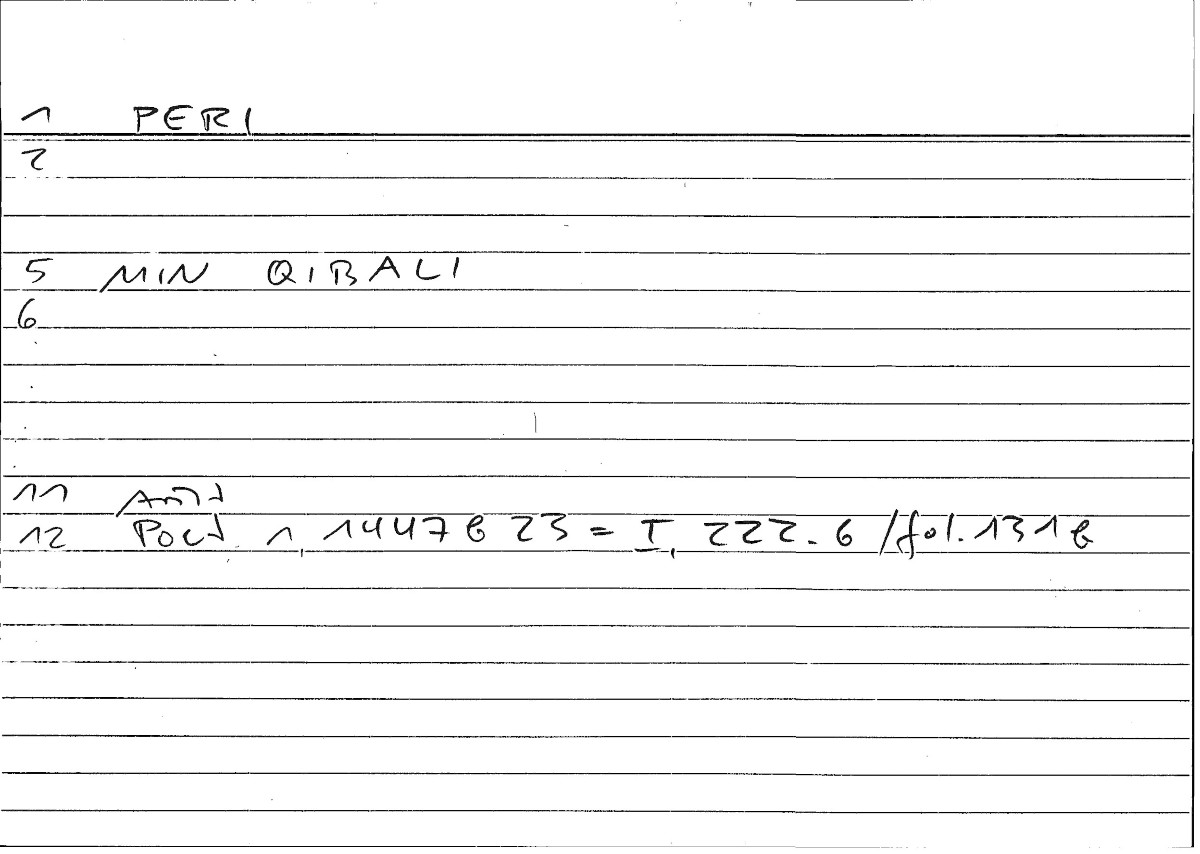 1 PERI
2
5 MIN QIBALI
6
11 Arist
12 Poet. 1, 1447 b 23 = I, 222.6 /fol. 131b